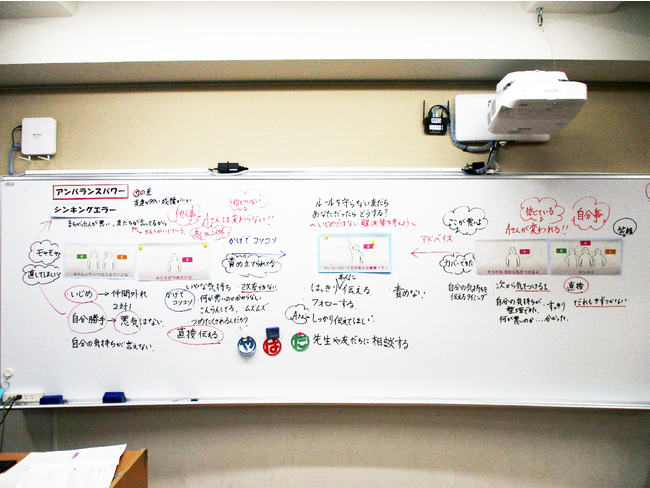 アンバランスパワー
力の差
シンキングエラー
まちがえた人が悪い、友だちが言ってるから
他人事
信じていない
Aさんは変わらない!!
モヤモヤ
直してほしい
かげで コソコソ
責め立てられてる
いじめ→仲間外れ
2対1
自分勝手→悪気はない
自分の気持ちが言えない。
かげで
コソコソ
いやな気持ち
何が悪いのか分からない
ムズムズ
つめたくされるんだろう
直接伝える
ルールを守らない友だち
あなただったらどうする?
いじめではない解決策を考えよう
本人に
はっきり伝える
フォローする
Aさん
しっかり伝えてほしい
責めない
や
な
た
先生や友だちに相談する
アドバイス
ここが悪いよ
カバーできた
自分の気持ちを
伝えるタイミング
信じている
Aさんが変われる!!
自分事
笑顔
次から気をつけるね
直接
自分の気持ちが
整理できた
すっきり
何が悪いのか…分かった
だれもきずつかない